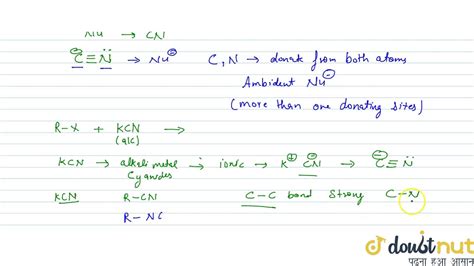 Nu → CN
⊖C≡N̈ → Nu⊖ C, N → donate from both atoms
Ambident Nu⊖
(more than one donating sites)
R-X + KCN →
(alc)
KCN → alkali metal → ionic → K⊕ C̅N⊖ → ⊖C≡N
Cyanides
KCN R-CN C-C bond strong C-N
R-NC
doubtnut
पढ़ना हुआ आसान